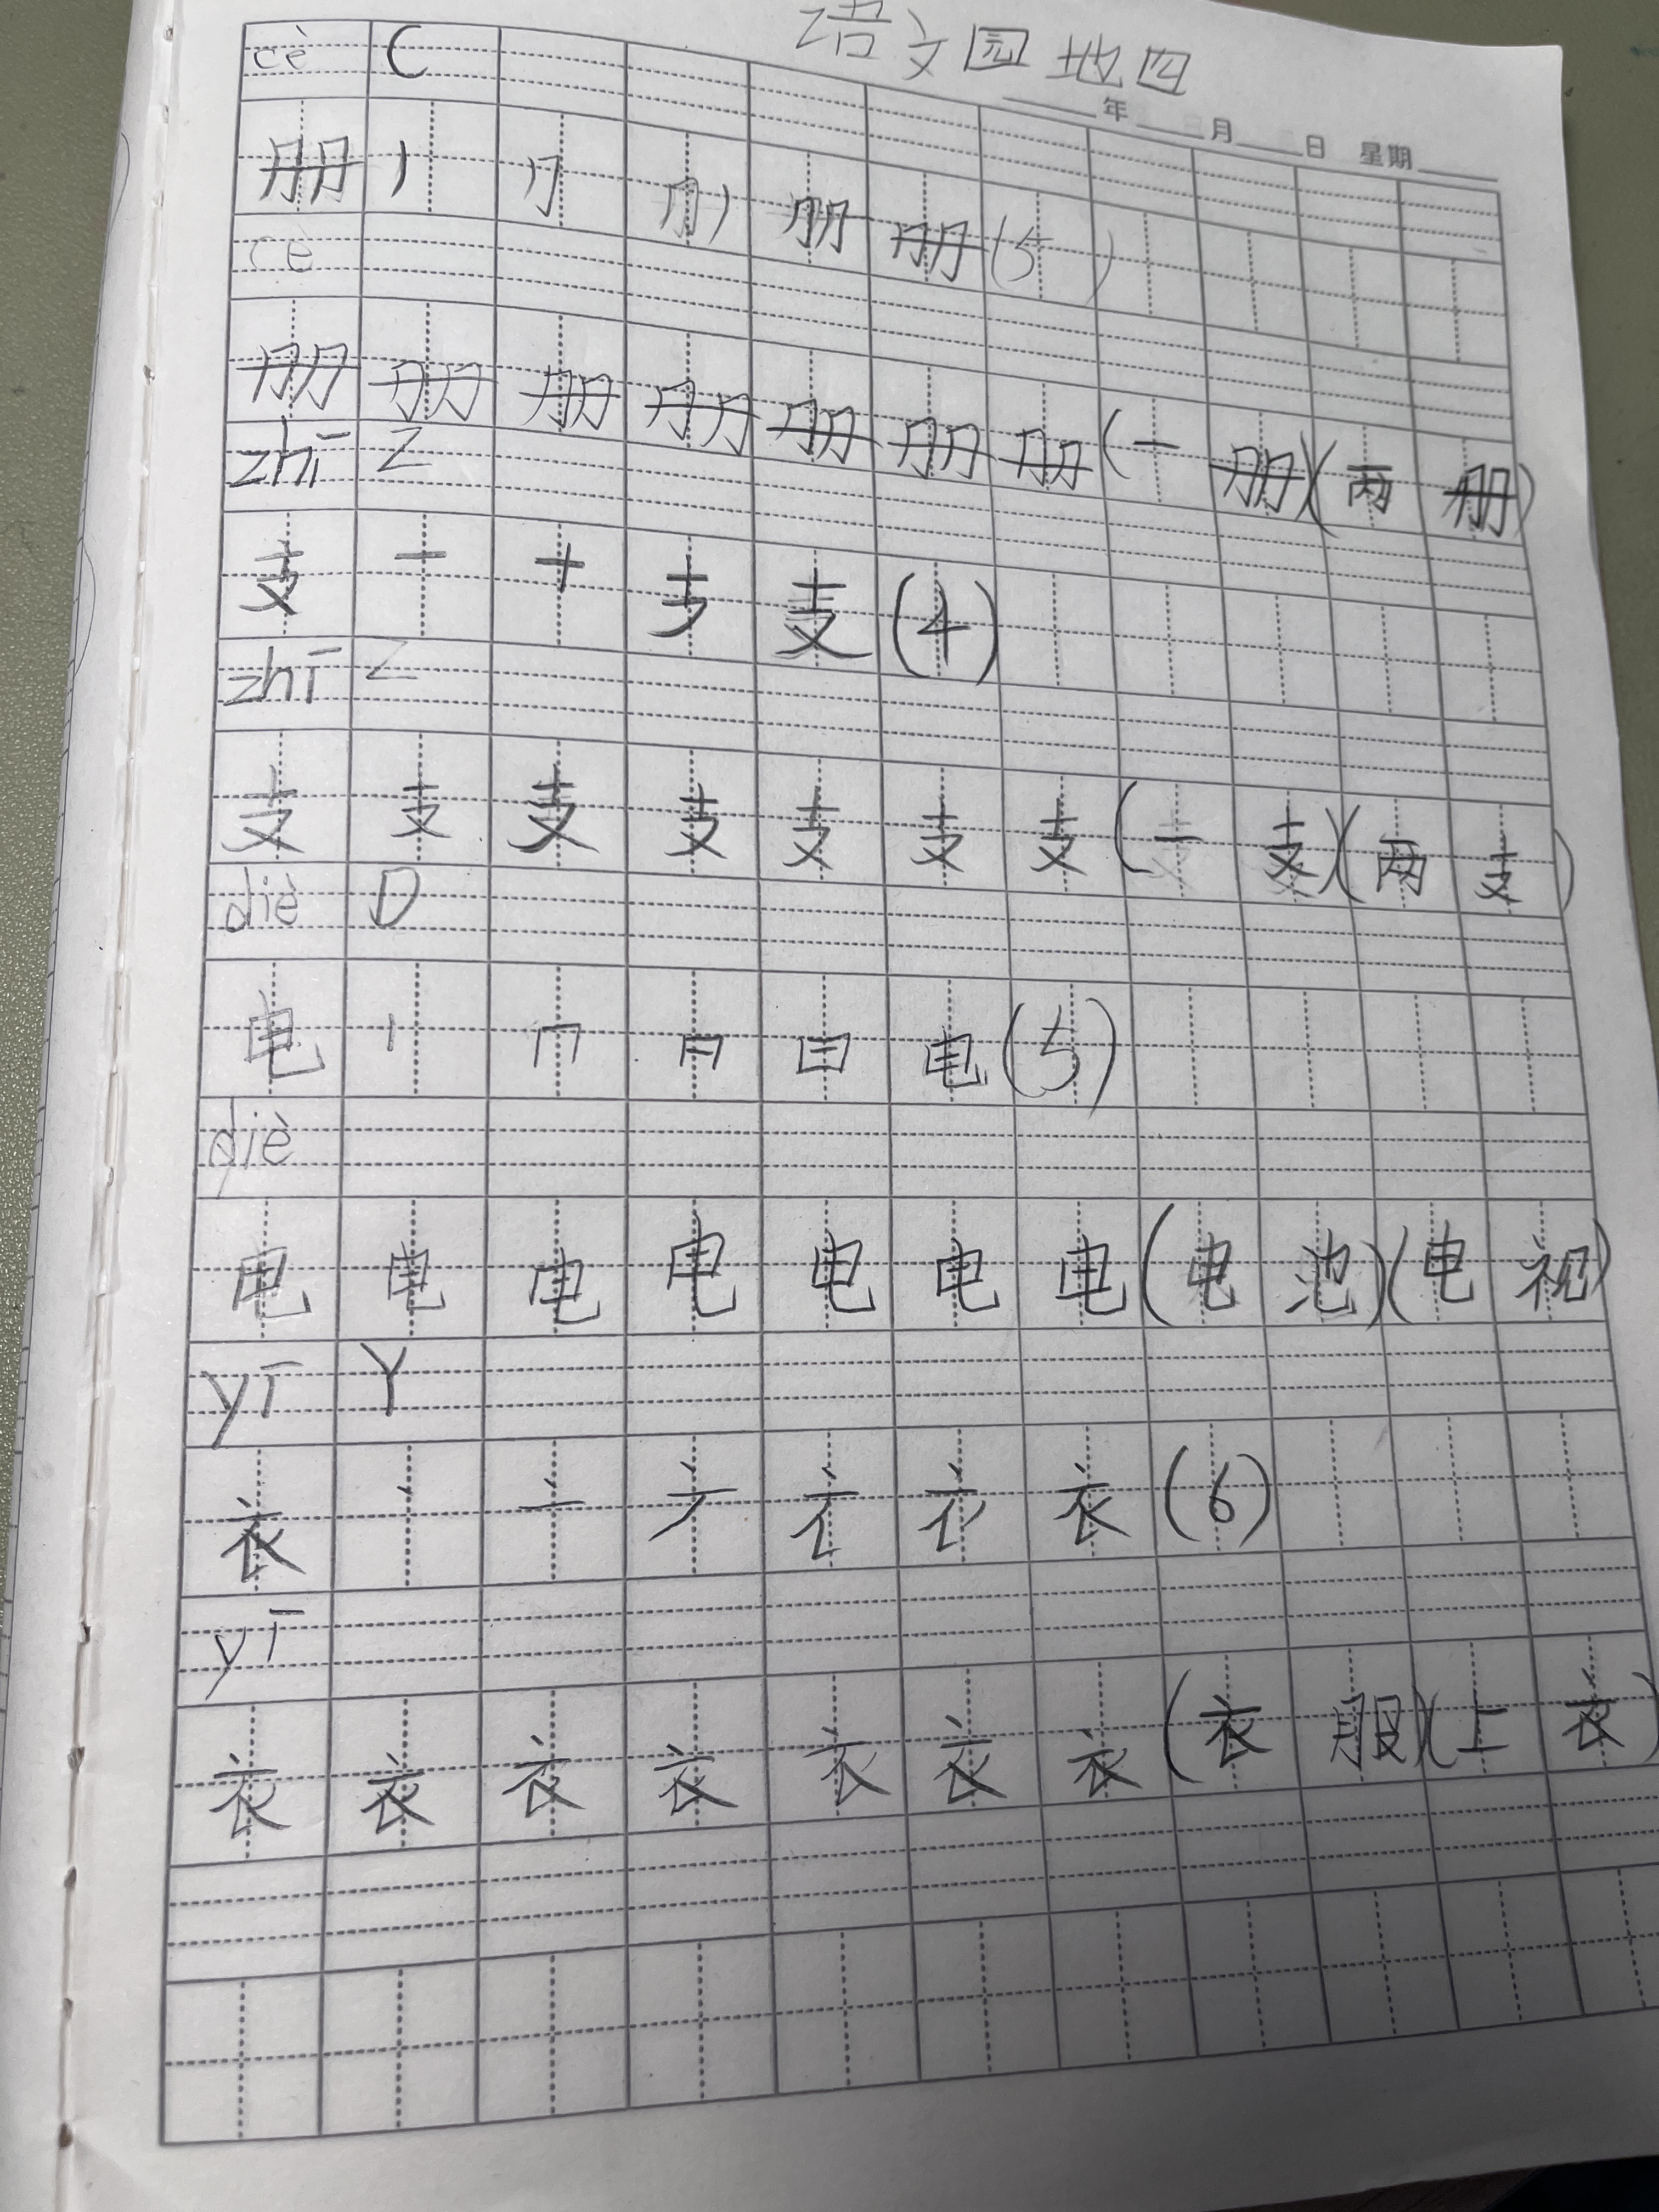 语文园地四
年 月 日 星期
cè C
册 丨 册 册 册 (5)
cè
册 册 册 册 册 册 册 (一册)(两册)
zhī Z
支 一 十 支 (4)
zhī Z
支 支 支 支 支 支 支 (一支)(两支)
diè D
电 丨 冂 日 电 (5)
diè
电 电 电 电 电 电 电 (电池)(电视)
yī Y
衣 丶 亠 衣 (6)
yī
衣 衣 衣 衣 衣 衣 衣 (衣服)(上衣)